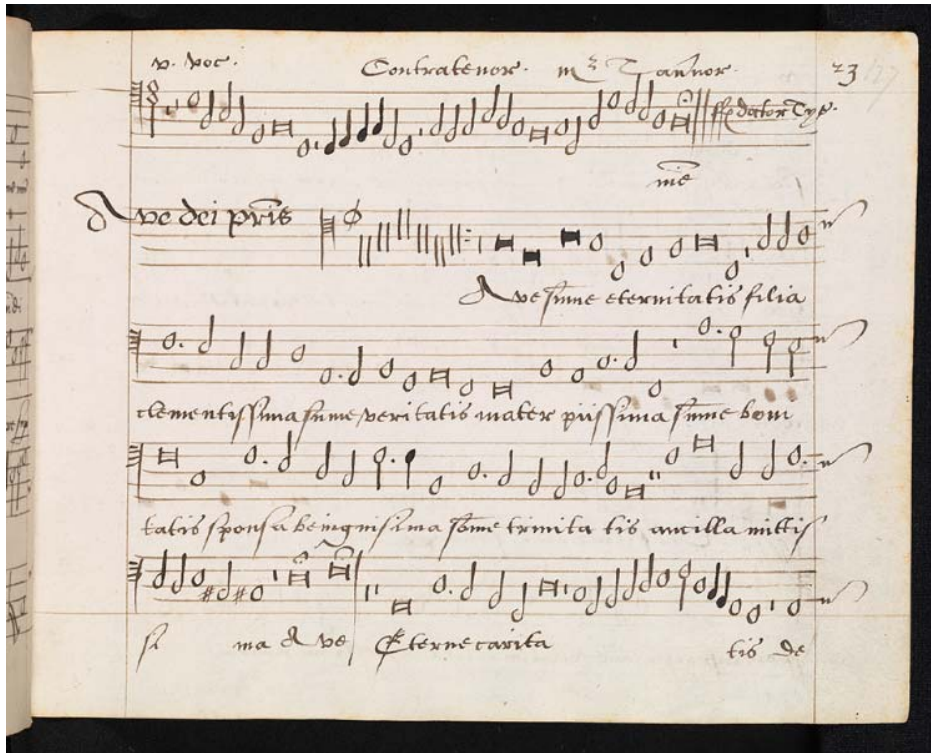 v. voc. Contratenor. mr Tavernor. 23 177
me
Ave dei pris
Ave sūme eternitatis filia
clementissima sūme veritatis mater piissima sūme boni
tatis sponsa beingnissima sōme trinita tis ancilla mittis
si ma Ave Eterne carita tis de